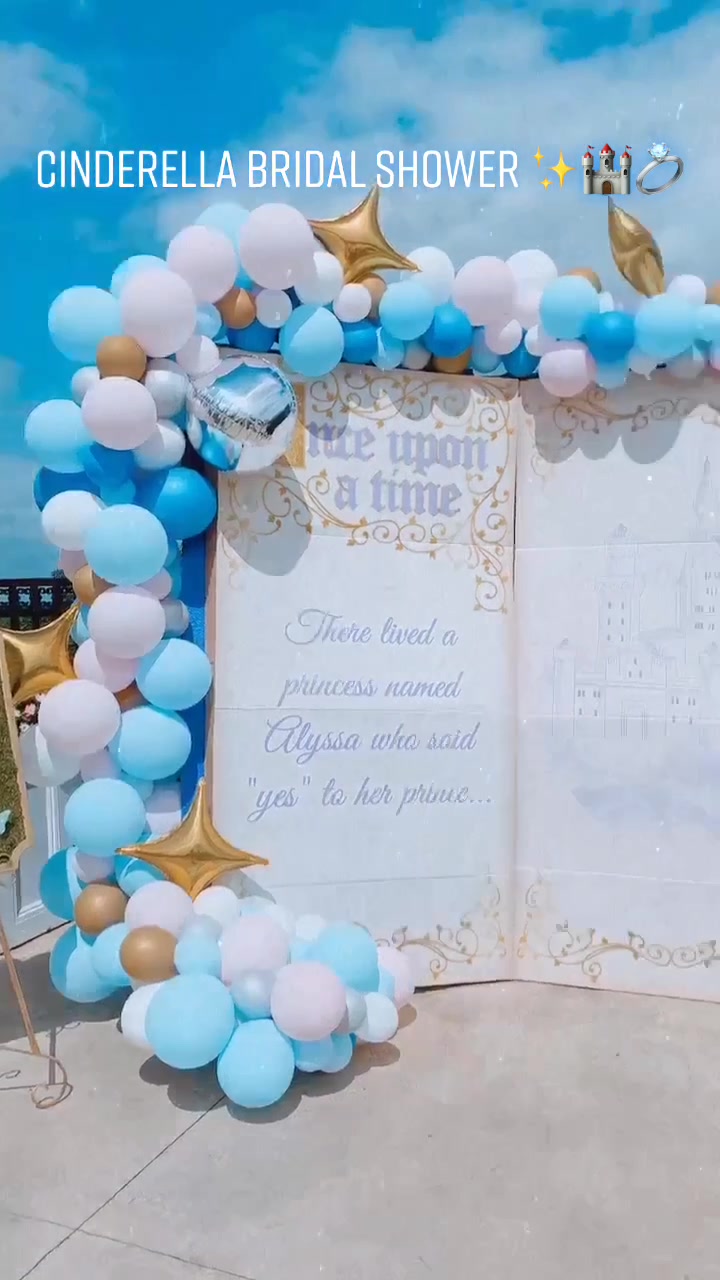 CINDERELLA BRIDAL SHOWER ✨🏰💍
nce upon
a time
There lived a
princess named
Alyssa who said
"yes" to her prince...